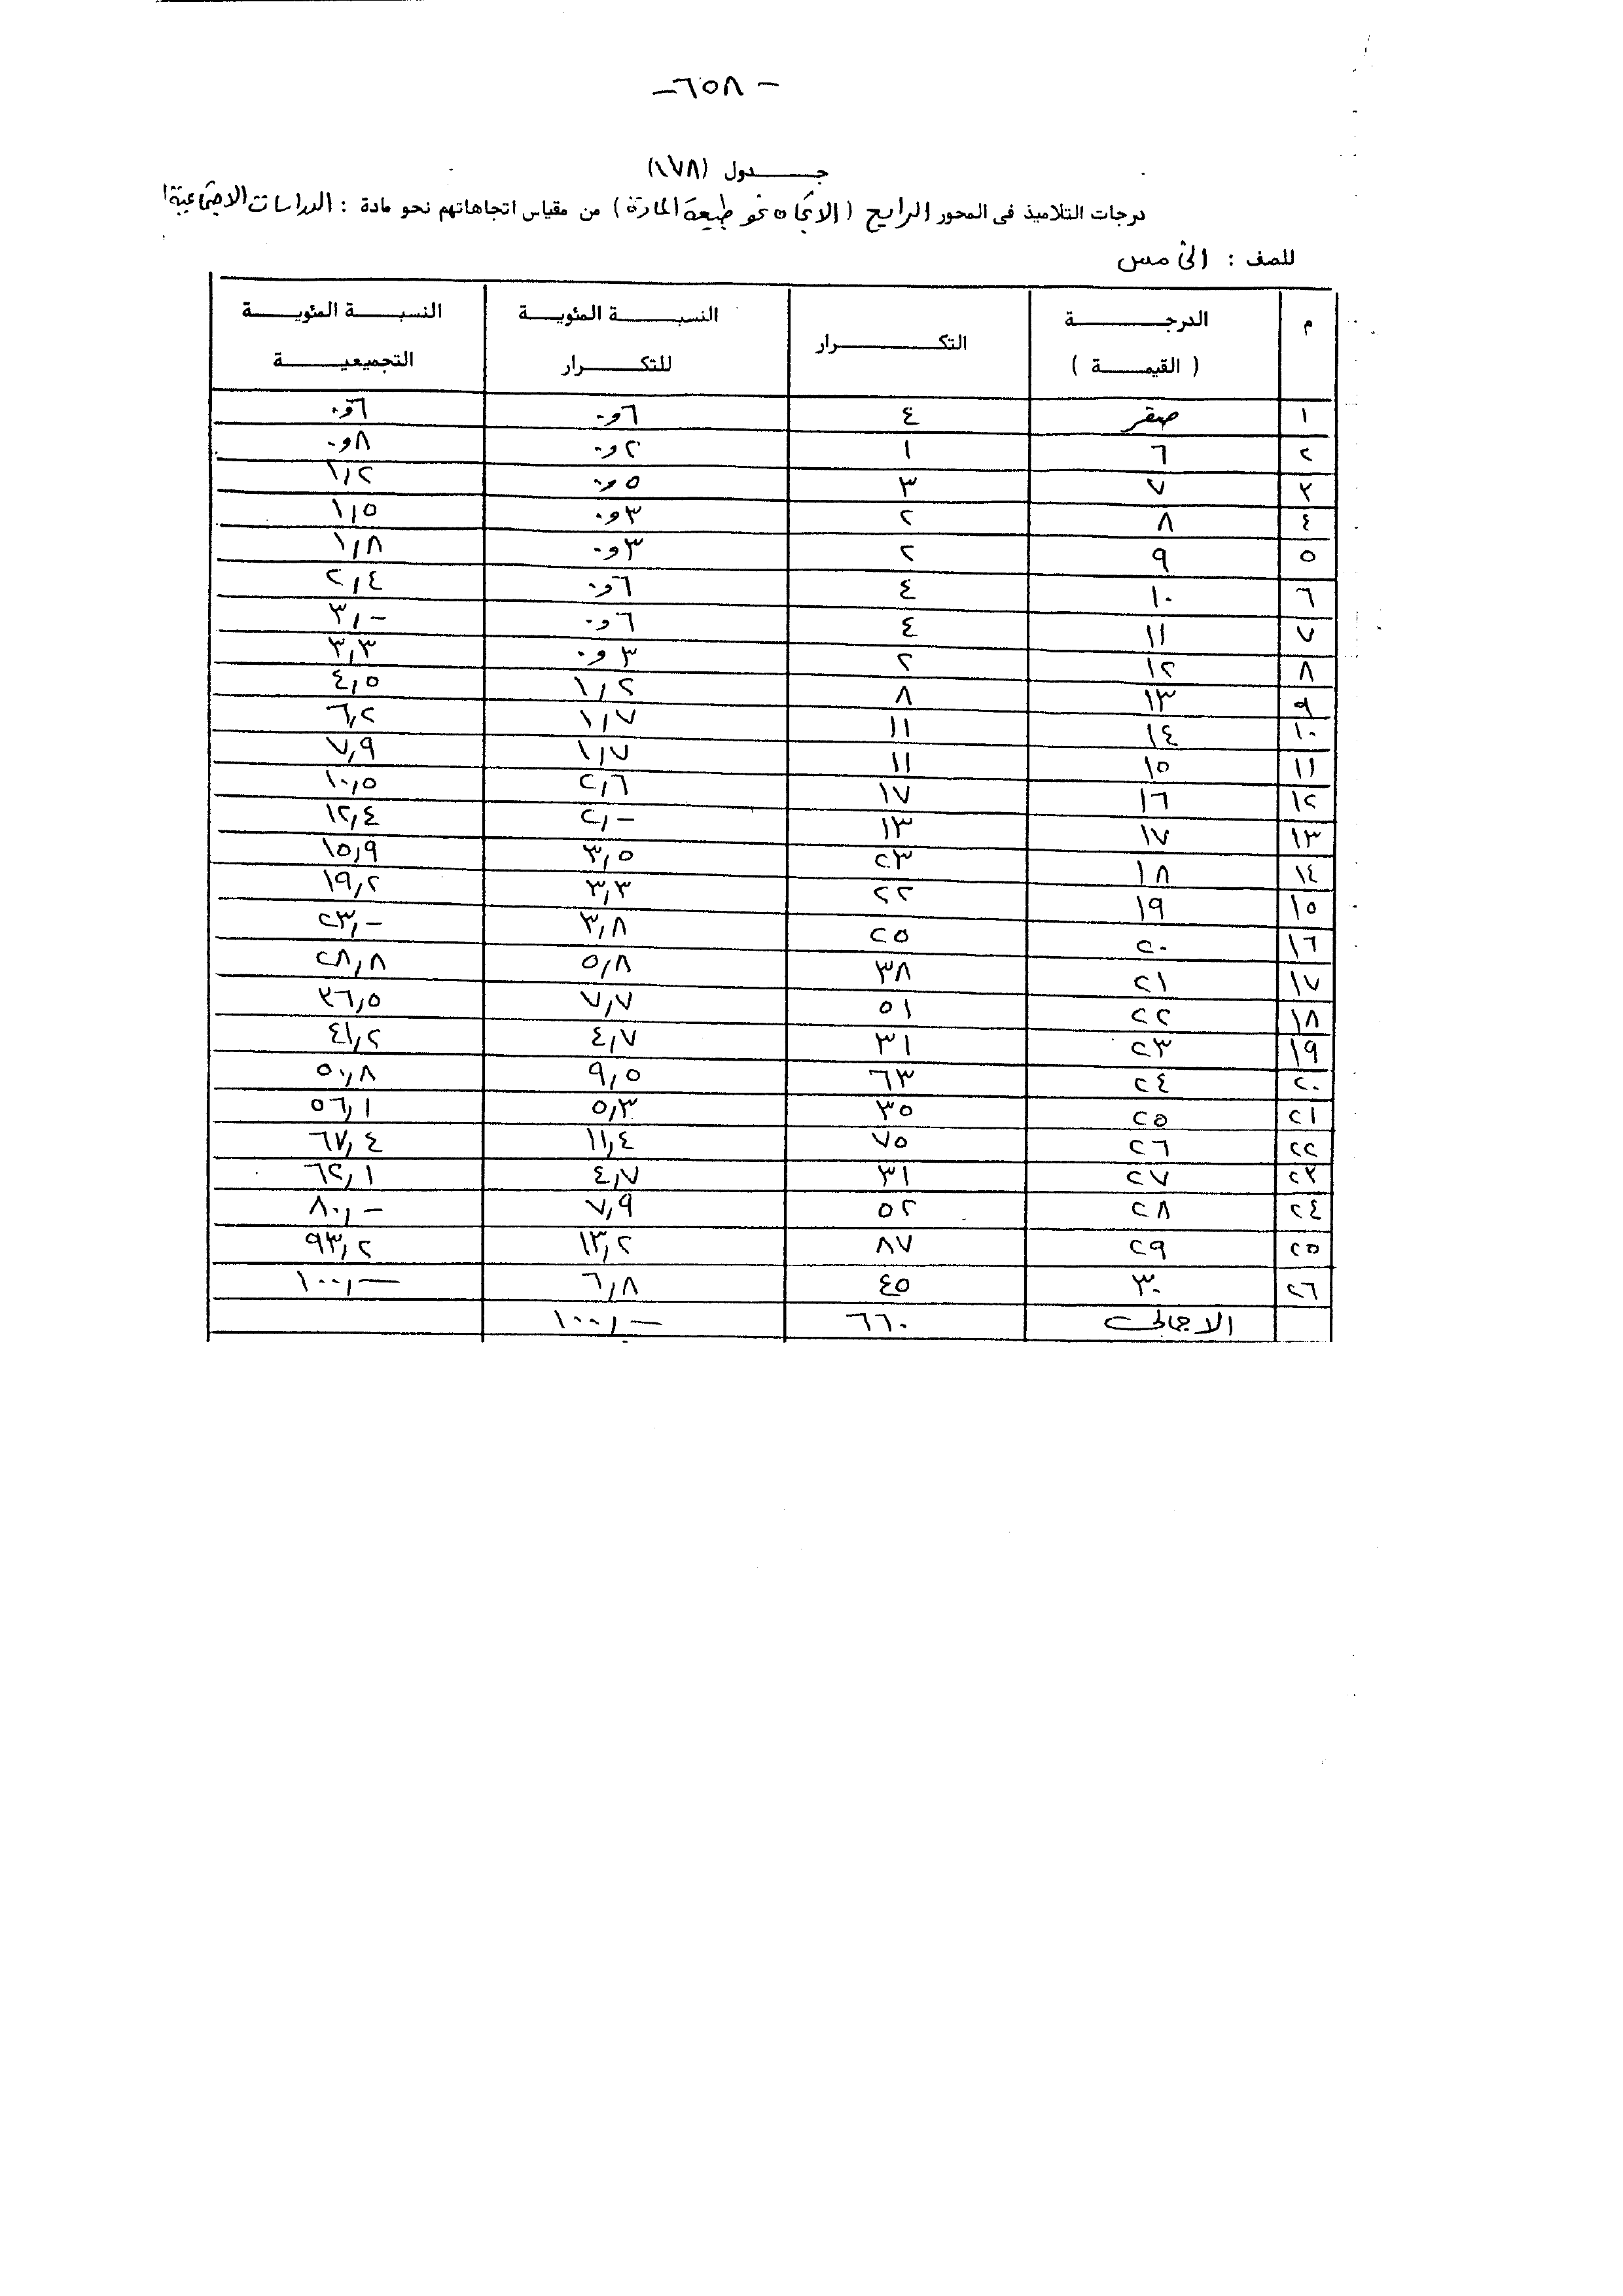 - ٦٥٨ -
جـــدول (١٧٨)
درجات التلاميذ فى المحور الرابع ( الاتجاه نحو طبيعة المادة ) من مقياس اتجاهاتهم نحو مادة : الدراسات الاجتماعية
للصف : الخامس
م الدرجـــة ( القيمـــة ) التكـــرار النسبـــة المئويـــة للتكـــرار النسبـــة المئويـــة التجميعيـــة
١ صفر ٤ ٦و٠ ٦و٠
٢ ٦ ١ ٢و٠ ٨و٠
٣ ٧ ٣ ٥و٠ ١,٢
٤ ٨ ٢ ٣و٠ ١,٥
٥ ٩ ٢ ٣و٠ ١,٨
٦ ١٠ ٤ ٦و٠ ٢,٤
٧ ١١ ٤ ٦و٠ ٣,-
٨ ١٢ ٢ ٣و٠ ٣,٣
٩ ١٣ ٨ ١,٢ ٤,٥
١٠ ١٤ ١١ ١,٧ ٦,٢
١١ ١٥ ١١ ١,٧ ٧,٩
١٢ ١٦ ١٧ ٢,٦ ١٠,٥
١٣ ١٧ ١٣ ٢,- ١٢,٤
١٤ ١٨ ٢٣ ٣,٥ ١٥,٩
١٥ ١٩ ٢٢ ٣,٣ ١٩,٢
١٦ ٢٠ ٢٥ ٣,٨ ٢٣,-
١٧ ٢١ ٣٨ ٥,٨ ٢٨,٨
١٨ ٢٢ ٥١ ٧,٧ ٣٦,٥
١٩ ٢٣ ٣١ ٤,٧ ٤١,٢
٢٠ ٢٤ ٦٣ ٩,٥ ٥٠,٨
٢١ ٢٥ ٣٥ ٥,٣ ٥٦,١
٢٢ ٢٦ ٧٥ ١١,٤ ٦٧,٤
٢٣ ٢٧ ٣١ ٤,٧ ٦٢,١
٢٤ ٢٨ ٥٢ ٧,٩ ٨٠,-
٢٥ ٢٩ ٨٧ ١٣,٢ ٩٣,٢
٢٦ ٣٠ ٤٥ ٦,٨ ١٠٠,-
الاجمالى ٦٦٠ ١٠٠,-